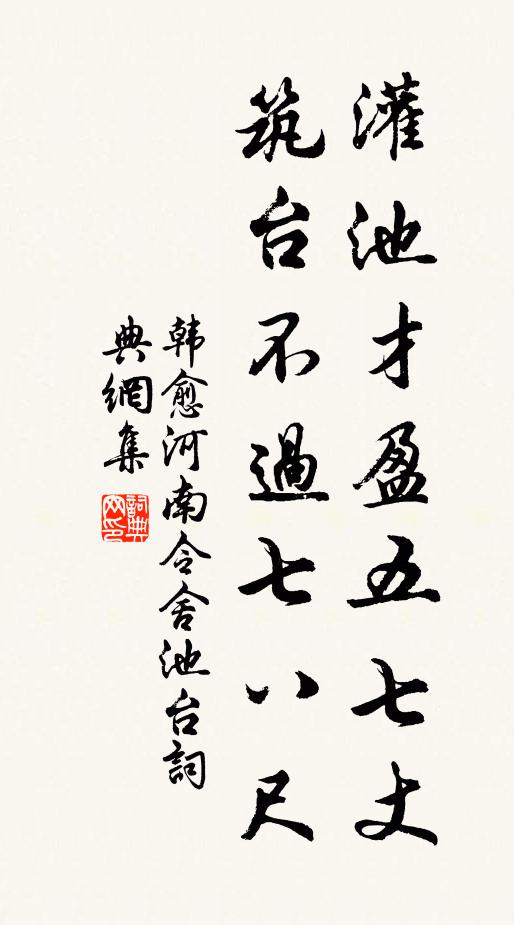 灌池才盈五七丈
筑台不過七八尺
韩愈河南令舍池台詞
典網集
詞典
网印